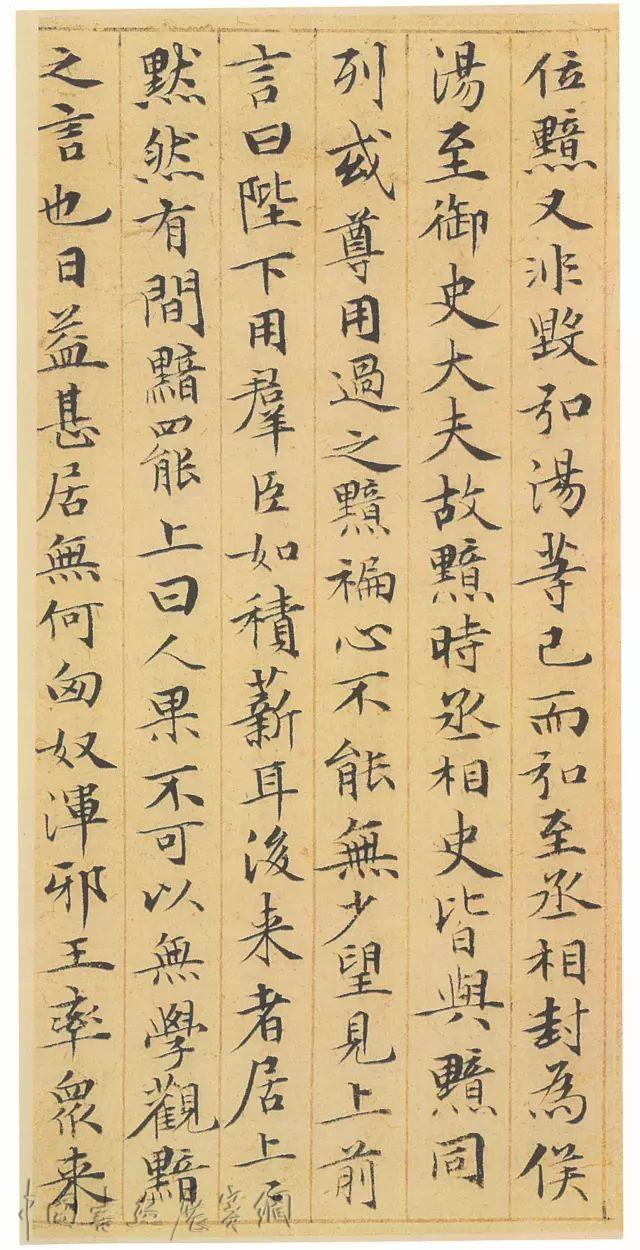 位黯又非毀弘湯等已而弘至丞相封為侯
湯至御史大夫故黯時丞相史皆與黯同
列或尊用過之黯褊心不能無少望見上前
言曰陛下用羣臣如積薪耳後来者居上
黙然有間黯罷上曰人果不可以無學觀黯
之言也日益甚居無何匈奴渾邪王率眾来